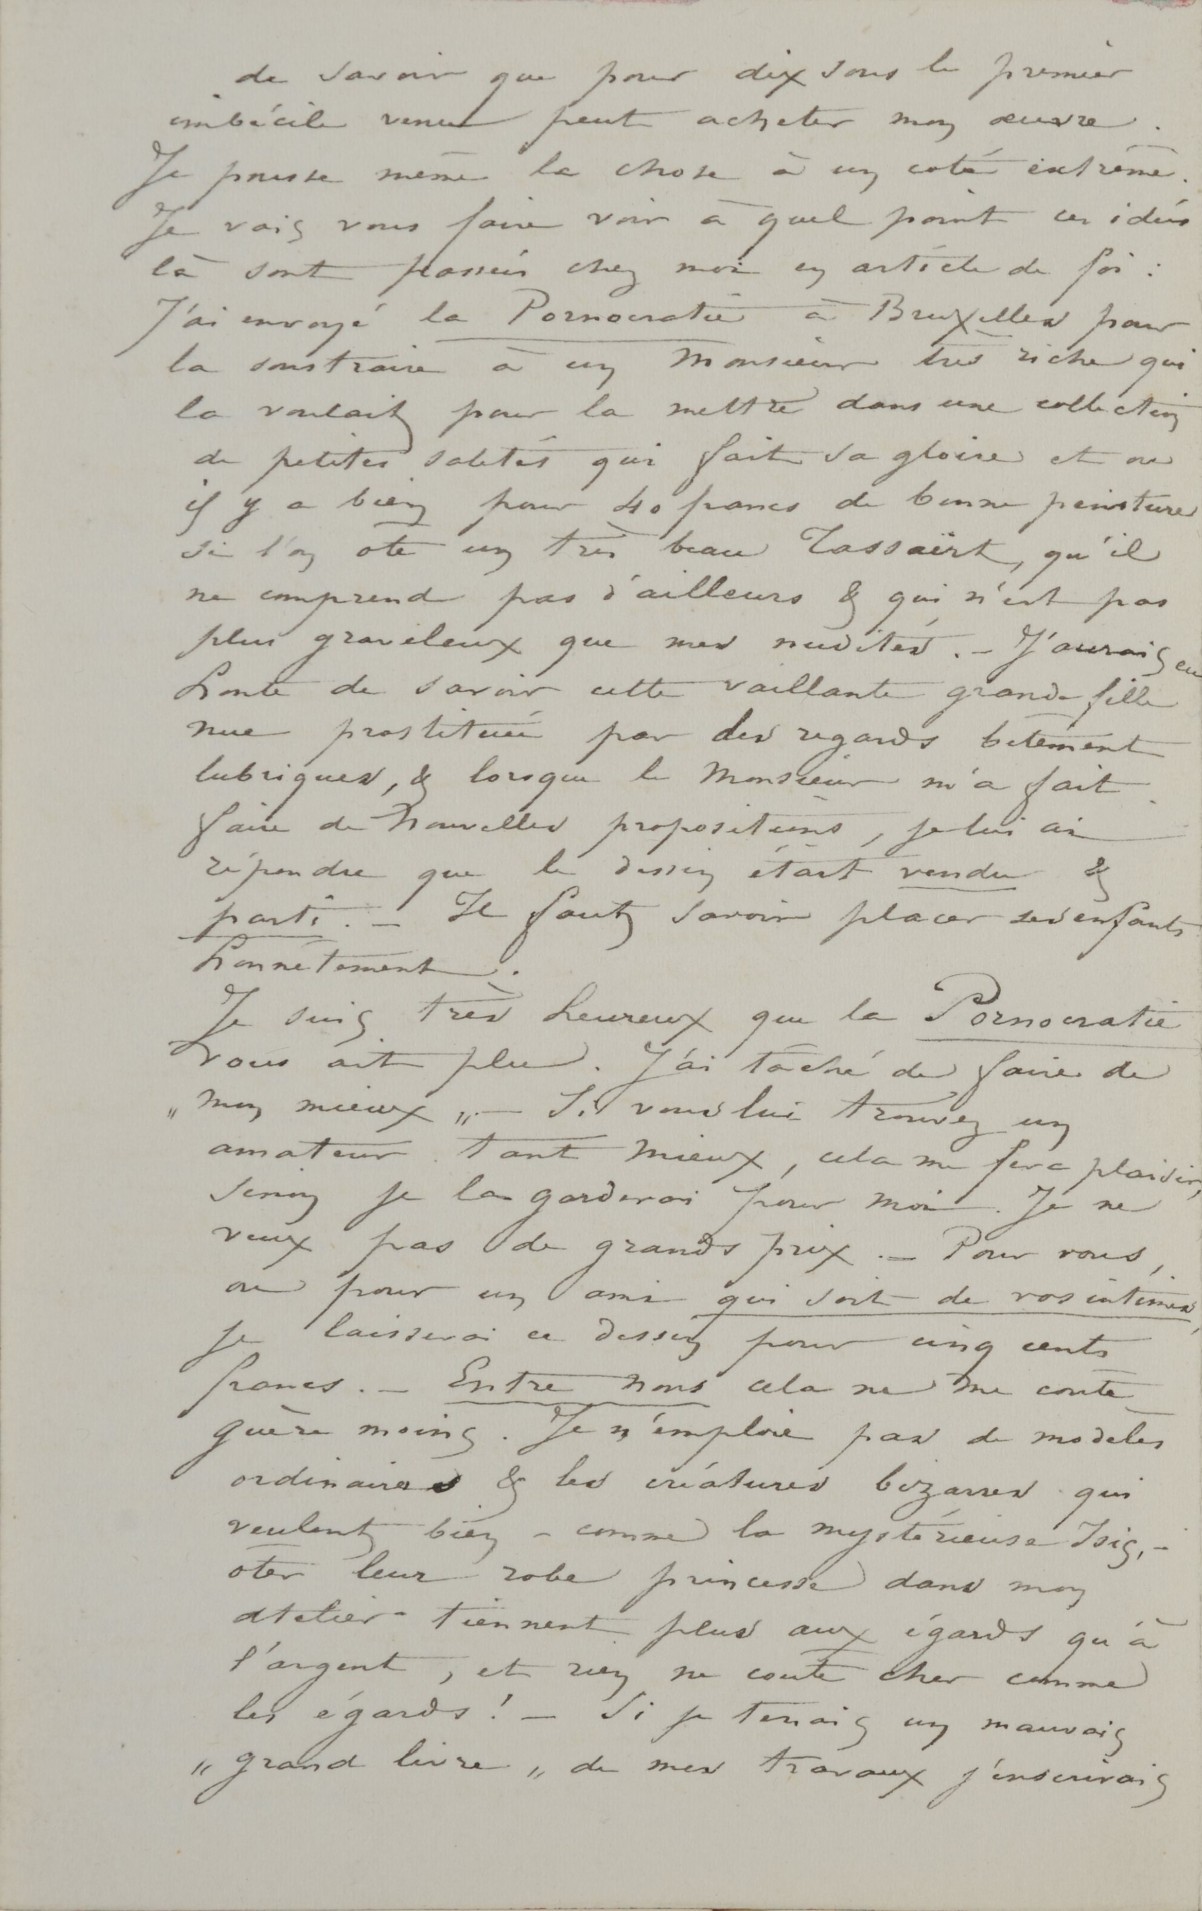 de savoir que pour dix sous le premier
imbécile venu peut acheter mon œuvre.
Je pousse même la chose à un coté extrême.
Je vais vous faire voir à quel point ces idées
là sont passées chez moi en article de foi :
J'ai envoyé la Pornocratie à Bruxelles pour
la soustraire à un Monsieur très riche qui
la voulait pour la mettre dans une collection
de petites saletés qui fait sa gloire et ou
il y a bien pour 40 francs de bonne peinture
si l'on ote un très beau Tassaërt, qu'il
ne comprend pas d'ailleurs & qui n'est pas
plus graveleux que mes nudités. – J'aurais eu
honte de savoir cette vaillante grande fille
nue prostituée par des regards bêtement
lubriques, & lorsque le Monsieur m'a fait
faire de Nouvelles propositions, je lui ai
répondre que le dessin était vendu &
parti. – Il faut savoir placer ses enfants
honnêtement.
Je suis très heureux que la Pornocratie
vous ait plu. J'ai tâché de faire de
„ mon mieux „ – Si vous lui trouvez un
amateur tant mieux, cela me fera plaisir,
sinon je la garderai pour moi. Je ne
veux pas de grands prix. – Pour vous,
ou pour un ami qui soit de vos intimes,
je laisserai ce dessin pour cinq cents
francs. – Entre nous cela ne me coute
guère moins. Je n'emploie pas de modèles
ordinaires & les créatures bizarres qui
veulent bien – comme la mystérieuse Isis, –
oter leur robe princesse dans mon
atelier – tiennent plus aux égards qu'à
l'argent, et rien ne coute cher comme
les égards ! – Si je tenais un mauvais
„ grand livre „ de mes travaux j'inscrirais